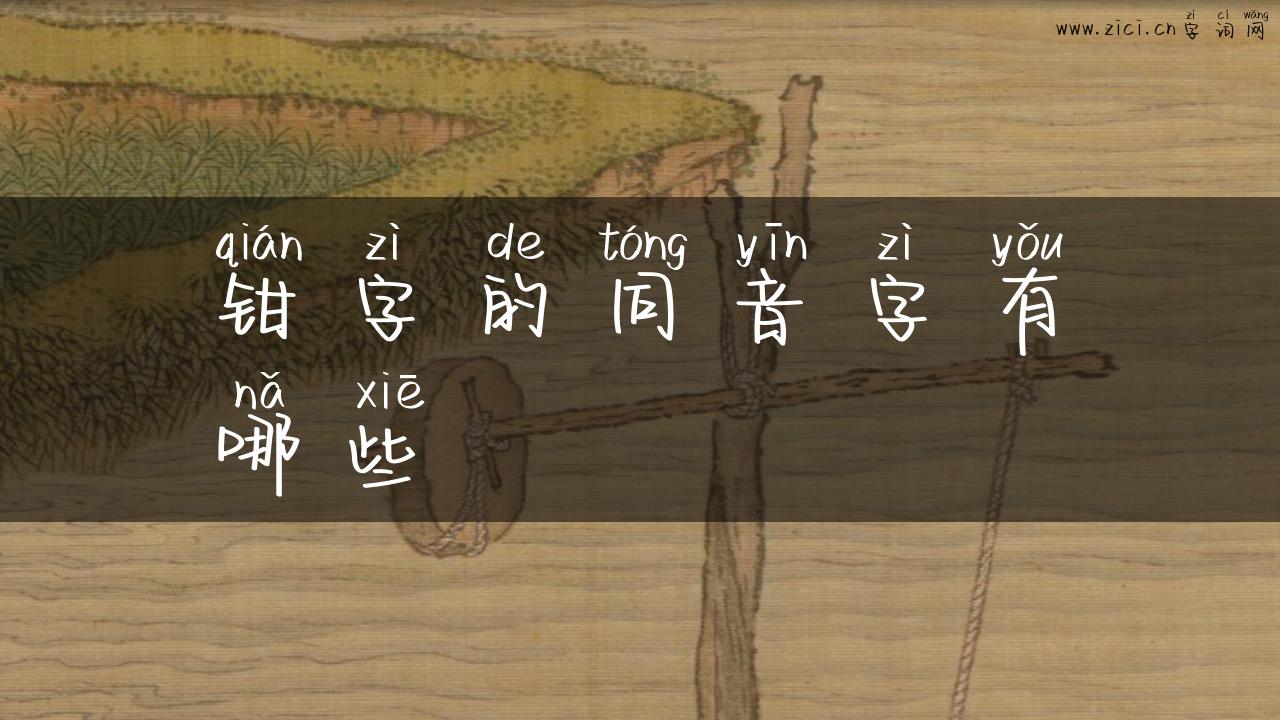 zì cí wǎng
www.zici.cn字词网
qián zì de tóng yīn zì yǒu
钳字的同音字有
nǎ xiē
哪些